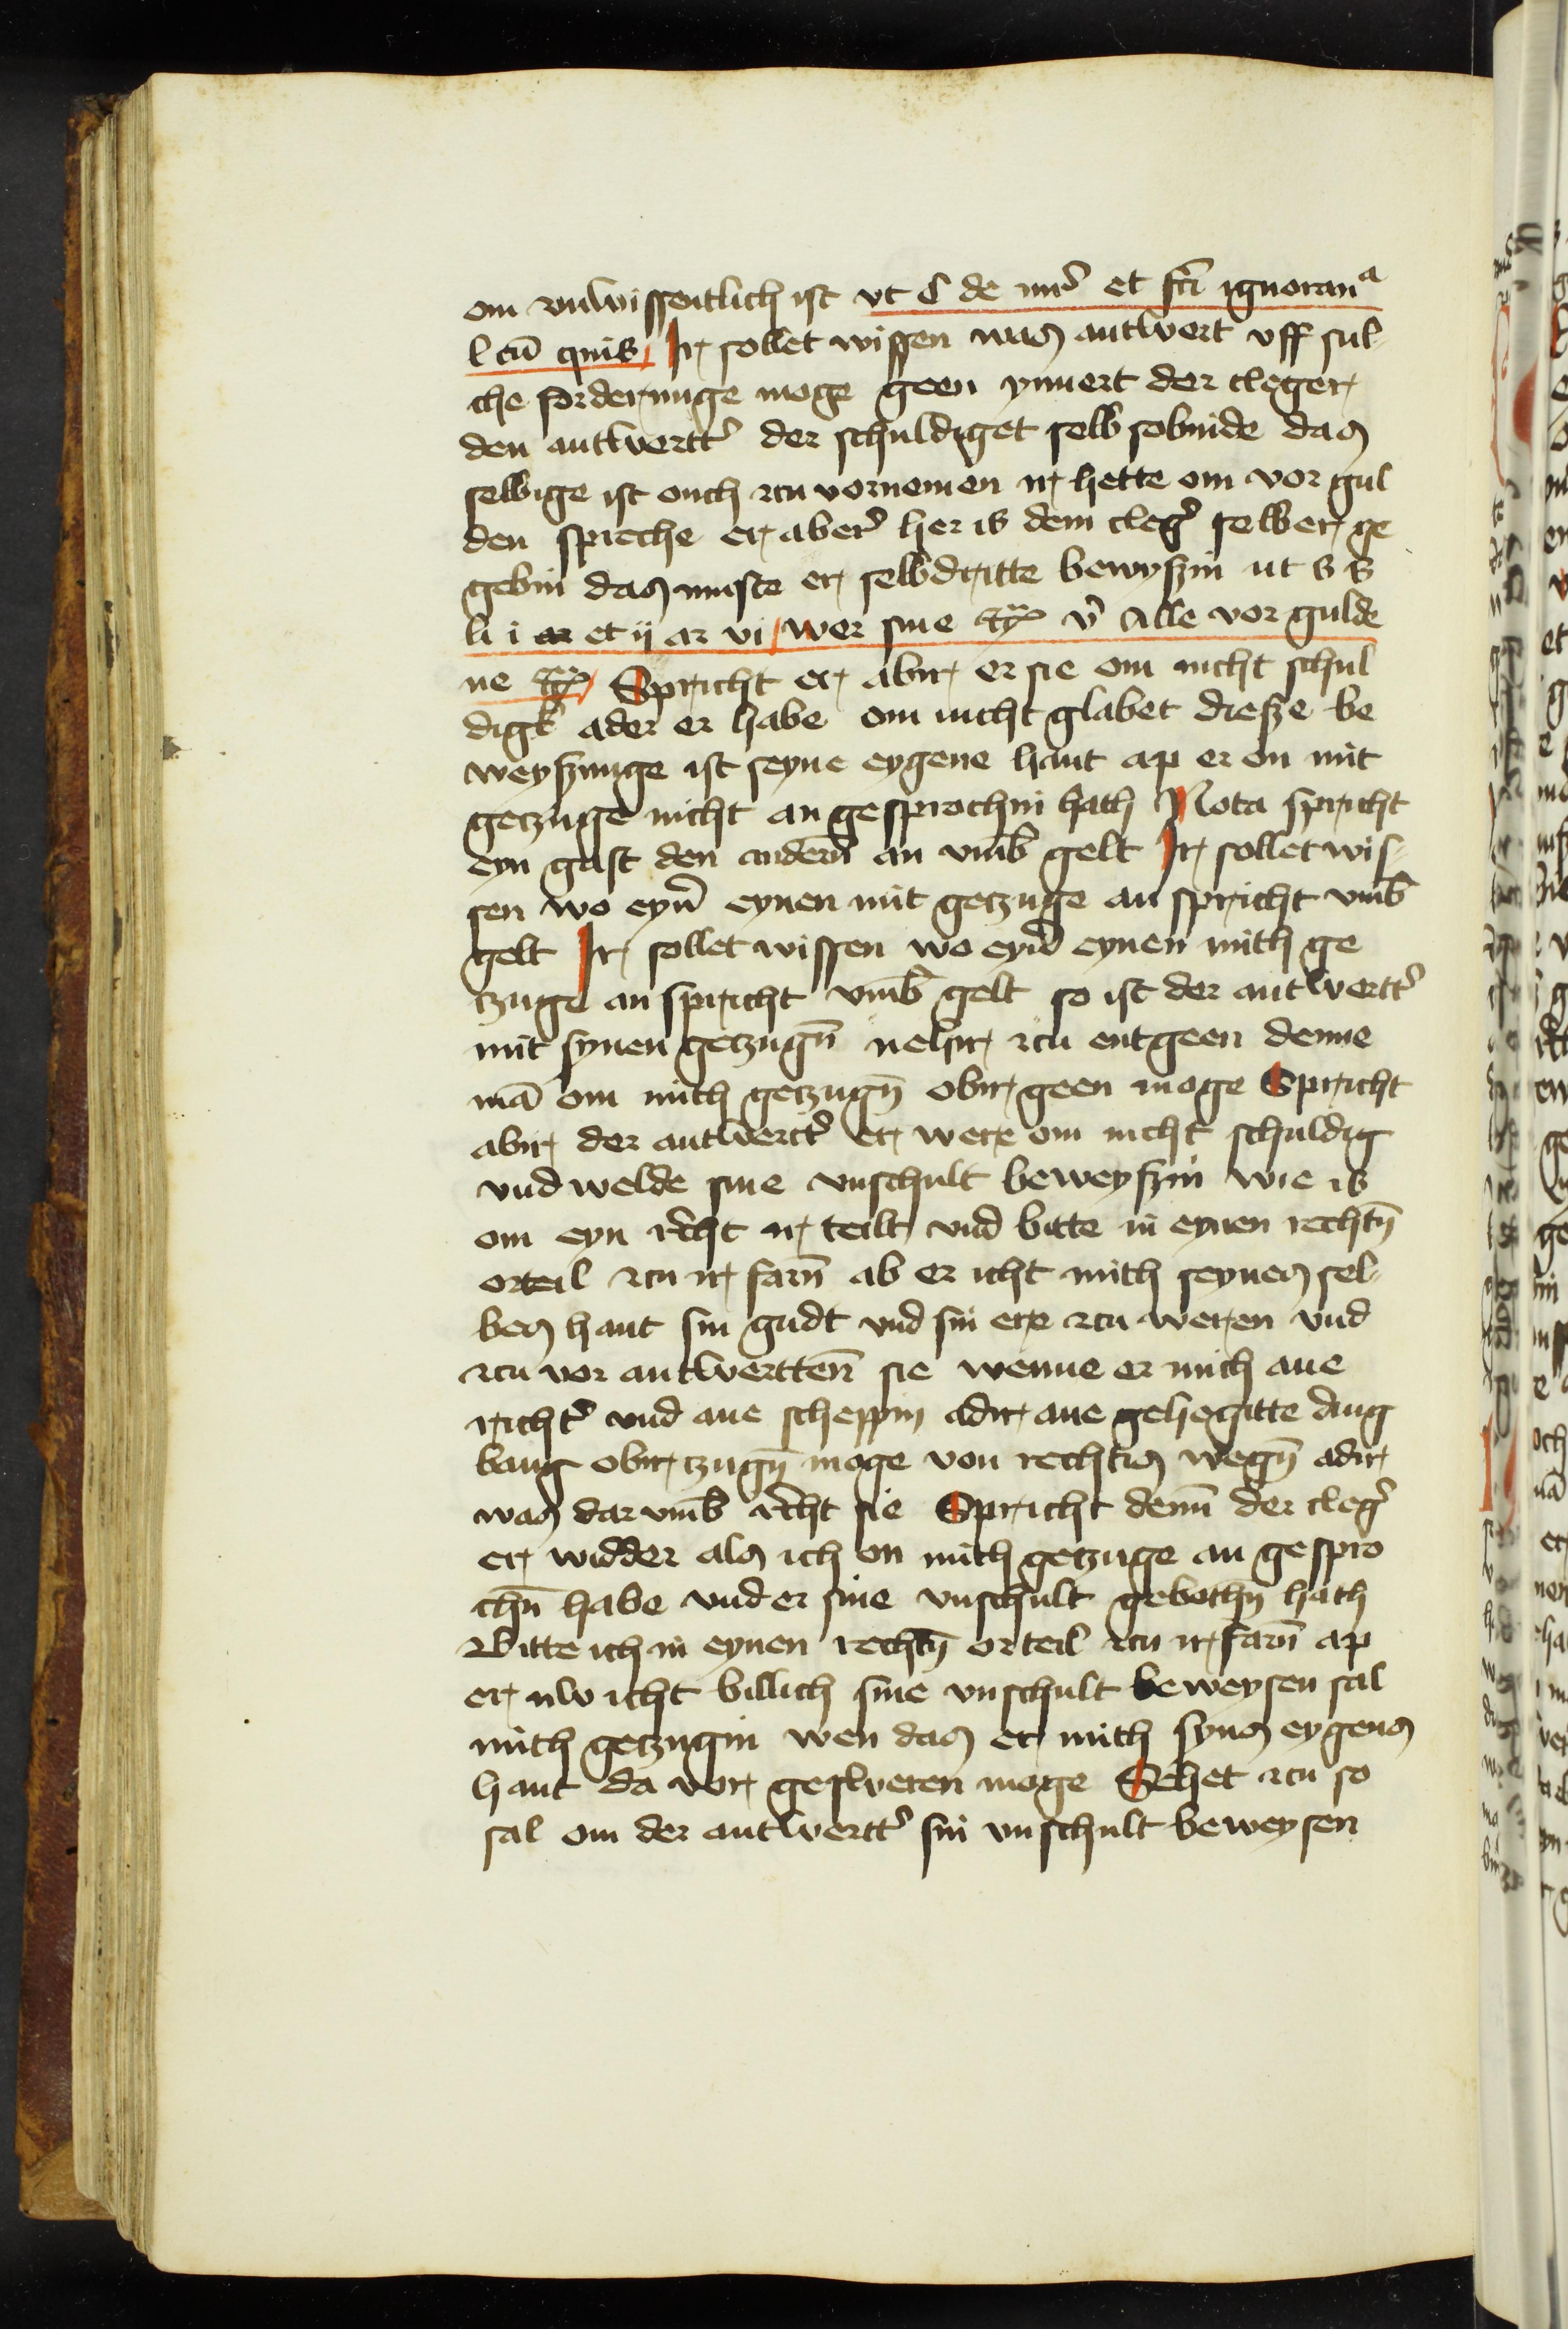 om vnwissentlich ist vt C de iur̉ et fcī ignoranᵃ
l cū quis Ir sollet wissen was antwert vff sul-
che forderunge moge geen ynnert der cleger
den antwertt̉ der schuldiget selb sobinde das
selbige ist ouch zcu vornemen ir hette om vor gul
den spreche er aber̉ her is dem cleg̉ selber ge
gebin das muste er selbdritte bewyszin ut s s
li i ar et ij ar vi wer sine v̉ Alle vor gulde
ne Spricht er abir er sie om nicht schul
digk ader er habe om nicht glabet diesze be
weyszunge ist seyne eygene hant ap er on mit
getzuge nicht an gesprochin hath Nota spricht
eyn gast den andern̄ an vmb̄ gelt Ir sollet wis-
sen wo eyn̉ eynen mit getzuge an spricht vmb̄
gelt Ir sollet wissen wo eyn̉ eynen mith ge
tzuge an spricht vmb̄ gelt so ist der antwertt̉
mit synen getzugn̄ nehir zcu entgeen denne
mā om mith getzugn̄ obir geen moge Spricht
abir der antwertt̉ er were om nicht schuldig
vnd welde sine vnschult beweyszin wie is
om eyn r̉cht ir teilt vnd bitte in eynen rechtn̄
orteil zcu ir farn̄ ab er icht mith seynes sel-
bes hant sin gudt vnd sin ere zcu weren vnd
zcu vor antwertten̄ sie wenne er mich ane
richt̉ vnd ane scheppin adir ane gehegitte ding
bang obir tzugn̄ moge von rechtis wegn̄ adir
was dar vmb̄ r̉cht sie Spricht denn̄ der cleg̉
er widder als ich on mith getzuge an gespro
chn̄ habe vnd er sine vnschult gebothn̄ hath
Bitte ich in eynen rechtn̄ orteil zcu ir farn̄ ap
er nw icht billich sine vnschult beweysen sal
mith getzugin wen das er mith synes eygens
hant da vor gesweren moge Sehet zcu so
sal om der antwertt̉ sin vnschult beweysen